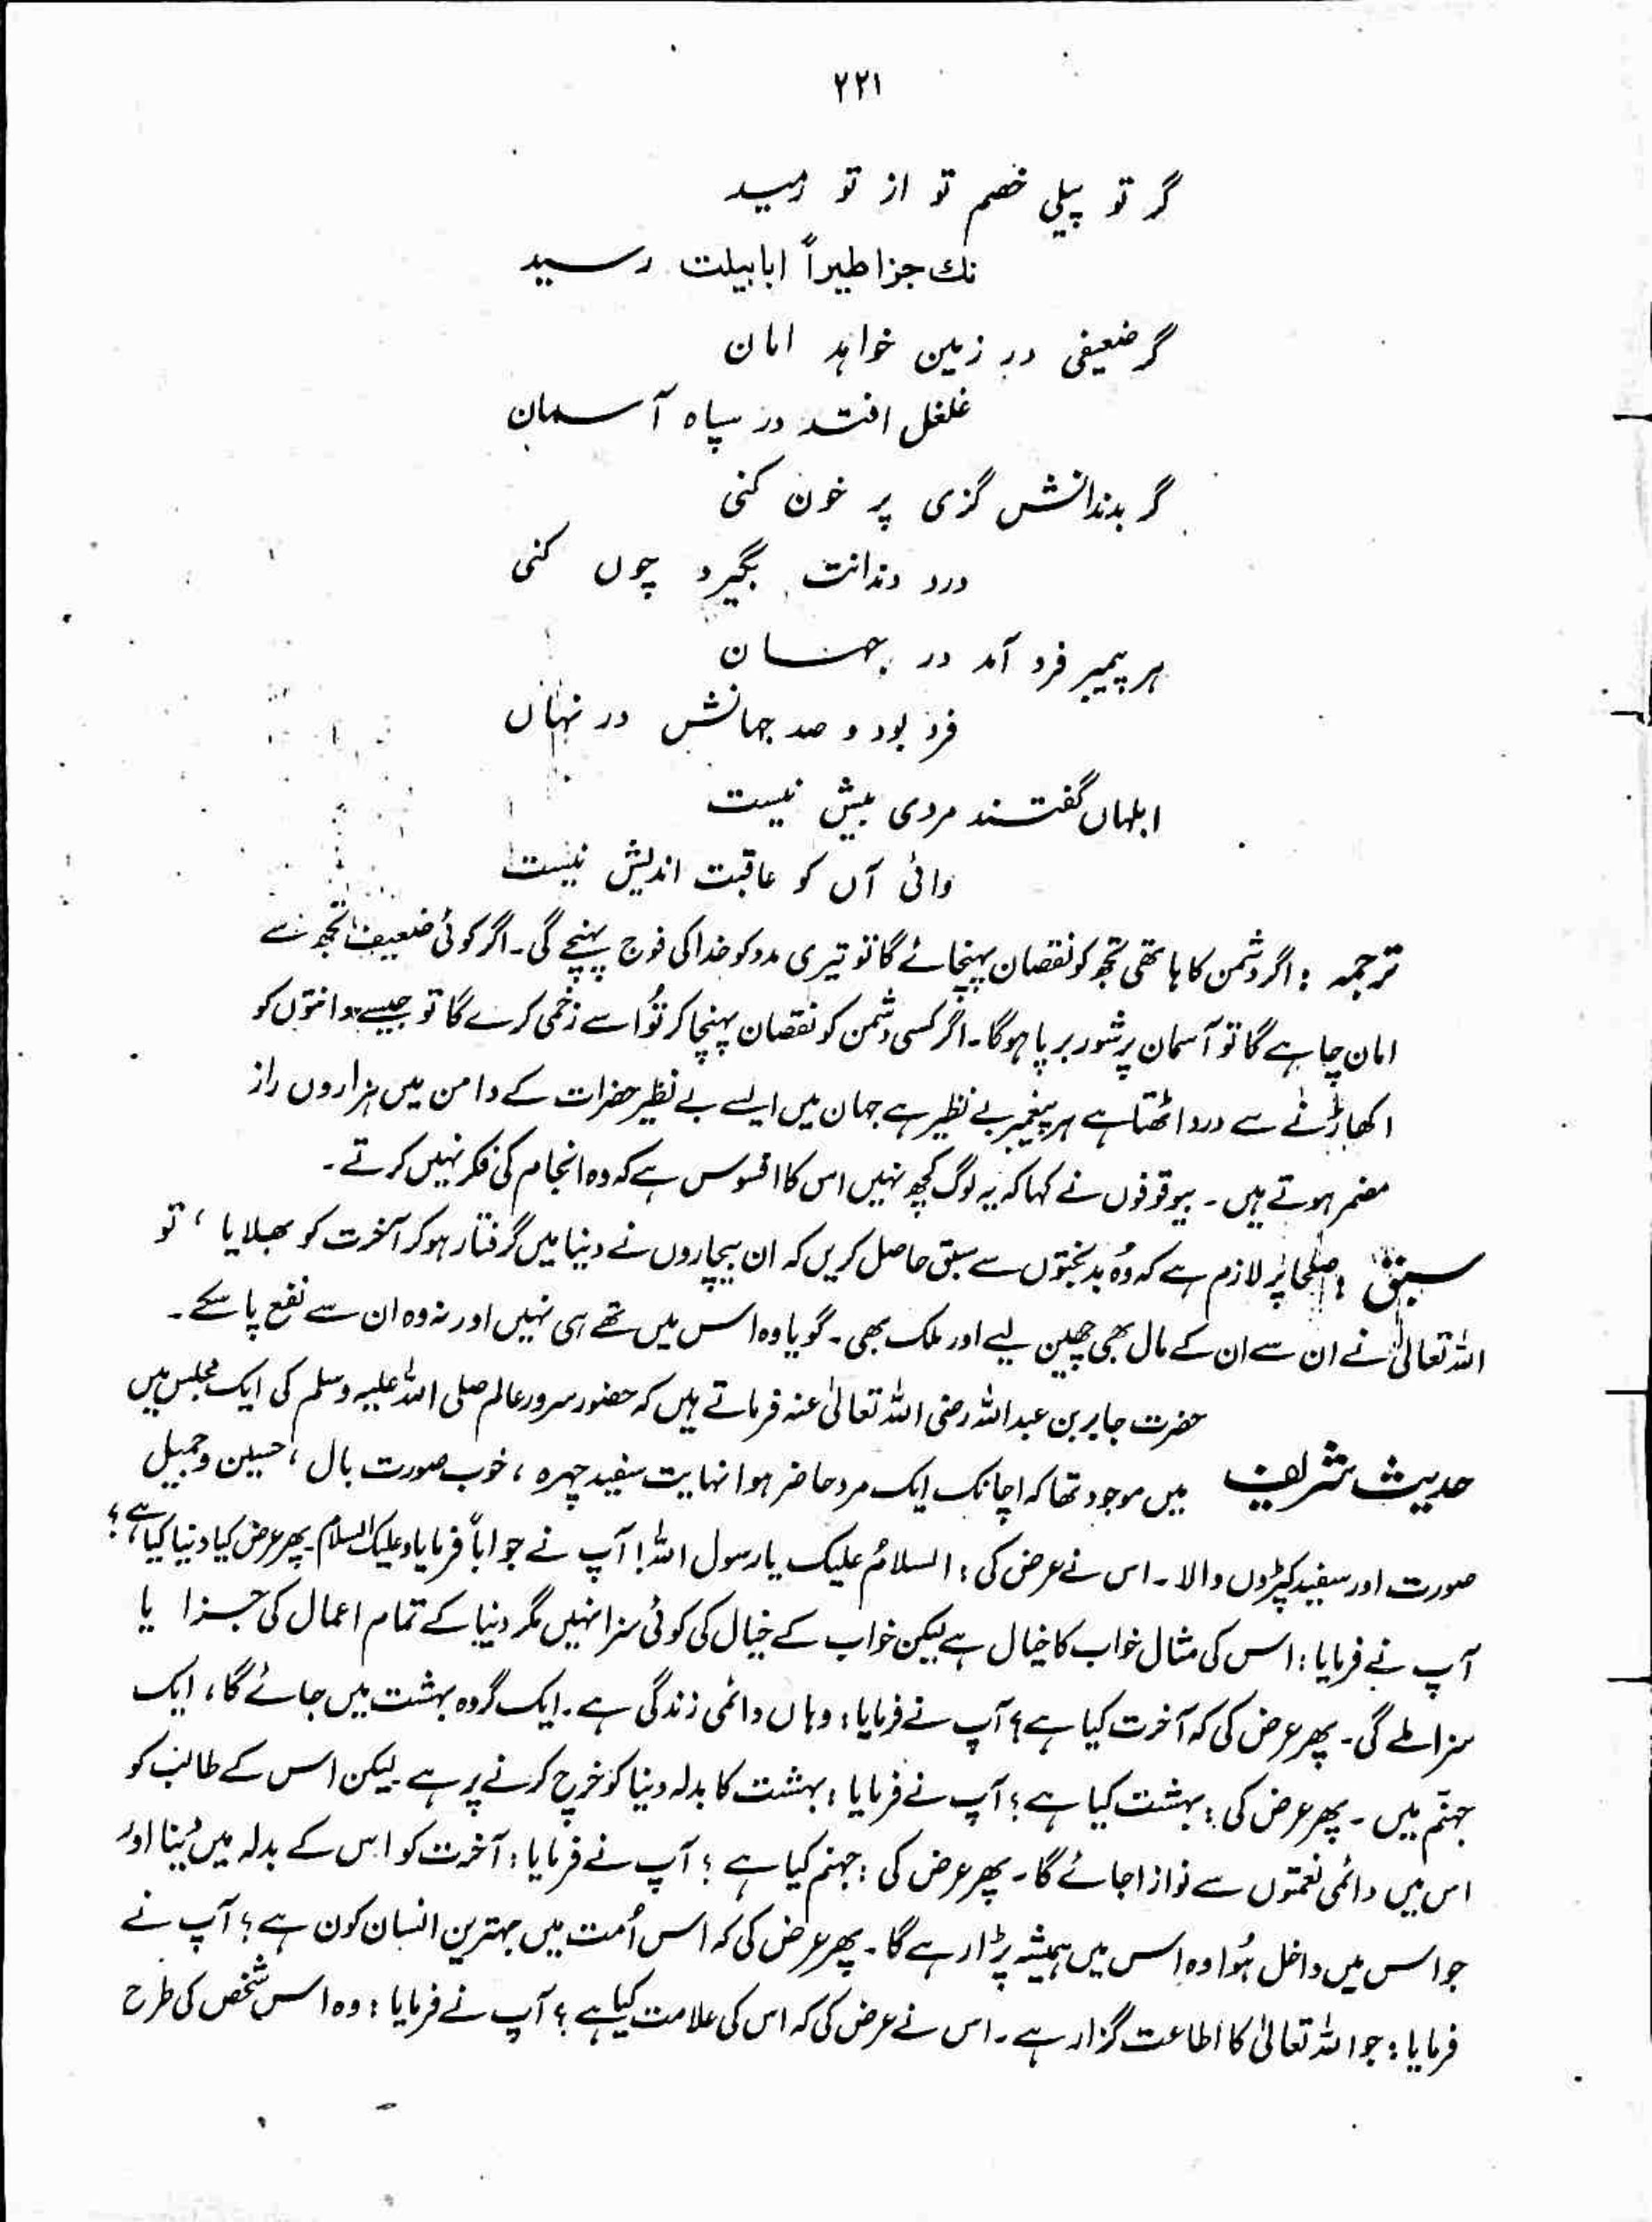 ۲۲۱
گر تو پیلی خصم تو از تو رمید
نك جزا طیراً ابابیلت رسید
گر ضعیفی در زمین خواہد امان
غلغل افتد در سپاہ آسمان
گر بدندانش گزی پر خون کنی
درد دندانت بگیرد چوں کنی
ہر پیمبر فرد آمد در جہان
فرد بود و صد جہانش در نہاں
ابلہاں گفتند مردی بیش نیست
وائی آں کو عاقبت اندیش نیست
ترجمہ : اگر دشمن کا ہاتھی تجھ کو نقصان پہنچائے گا تو تیری مدد کو خدا کی فوج پہنچے گی۔ اگر کوئی ضعیف تجھ سے
امان چاہے گا تو آسمان پر شور برپا ہوگا۔ اگر کسی دشمن کو نقصان پہنچا کر تُو اسے زخمی کرے گا تو جیسے دانتوں کو
اکھاڑنے سے درد اٹھتا ہے ہر پیغمبر بے نظیر ہے جہان میں ایسے بے نظیر حضرات کے دامن میں ہزاروں راز
مضمر ہوتے ہیں۔ بیوقوفوں نے کہا کہ یہ لوگ کچھ نہیں اس کا افسوس ہے کہ وہ انجام کی فکر نہیں کرتے۔
سبق : صلحا پر لازم ہے کہ وُہ بدبختوں سے سبق حاصل کریں کہ ان بیچاروں نے دنیا میں گرفتار ہو کر آخرت کو بھلایا ، تو
اللہ تعالیٰ نے ان سے ان کے مال بھی چھین لیے اور ملک بھی۔ گویا وہ اس میں تھے ہی نہیں اور نہ وہ ان سے نفع پا سکے۔
حضرت جابر بن عبداللہ رضی اللہ تعالیٰ عنہ فرماتے ہیں کہ حضور سرور عالم صلی اللہ علیہ وسلم کی ایک مجلس میں
حدیث شریف میں موجود تھا کہ اچانک ایک مرد حاضر ہوا نہایت سفید چہرہ ، خوب صورت بال ، حسین و جمیل
صورت اور سفید کپڑوں والا۔ اس نے عرض کی : السلامُ علیک یا رسول اللہ! آپ نے جواباً فرمایا وعلیک السلام۔ پھر عرض کیا دنیا کیا ہے؟
آپ نے فرمایا : اس کی مثال خواب کا خیال ہے لیکن خواب کے خیال کی کوئی سزا نہیں مگر دنیا کے تمام اعمال کی جزا یا
سزا ملے گی۔ پھر عرض کی کہ آخرت کیا ہے؟ آپ نے فرمایا : وہاں دائمی زندگی ہے۔ ایک گروہ بہشت میں جائے گا ، ایک
جہنّم میں۔ پھر عرض کی : بہشت کیا ہے؟ آپ نے فرمایا : بہشت کا بدلہ دنیا کو خرچ کرنے پر ہے لیکن اس کے طالب کو
اس میں دائمی نعمتوں سے نوازا جائے گا۔ پھر عرض کی : جہنم کیا ہے ؟ آپ نے فرمایا : آخرت کو اس کے بدلہ میں بیچنا اور
جو اس میں داخل ہُوا وہ اس میں ہمیشہ پڑا رہے گا۔ پھر عرض کی کہ اس اُمت میں بہترین انسان کون ہے؟ آپ نے
فرمایا : جو اللہ تعالیٰ کا اطاعت گزار ہے۔ اس نے عرض کی کہ اس کی علامت کیا ہے ؟ آپ نے فرمایا : وہ اس شخص کی طرح